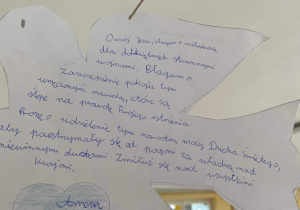 O mój Jezu, błagam o miłosierdzie
dla dotkniętych strasznymi
wojnami. Błagam o
zaszczepienie pokoju tym
wrogim narodom, które są
ślepe na prawdę Twojego istnienia.
Proszę o udzielenie tym narodom mocy Ducha Świętego,
aby powstrzymały się od pogoni za władzą nad
niewinnymi duszami. Zmiłuj się nad wszystkimi
krajami,
Amen